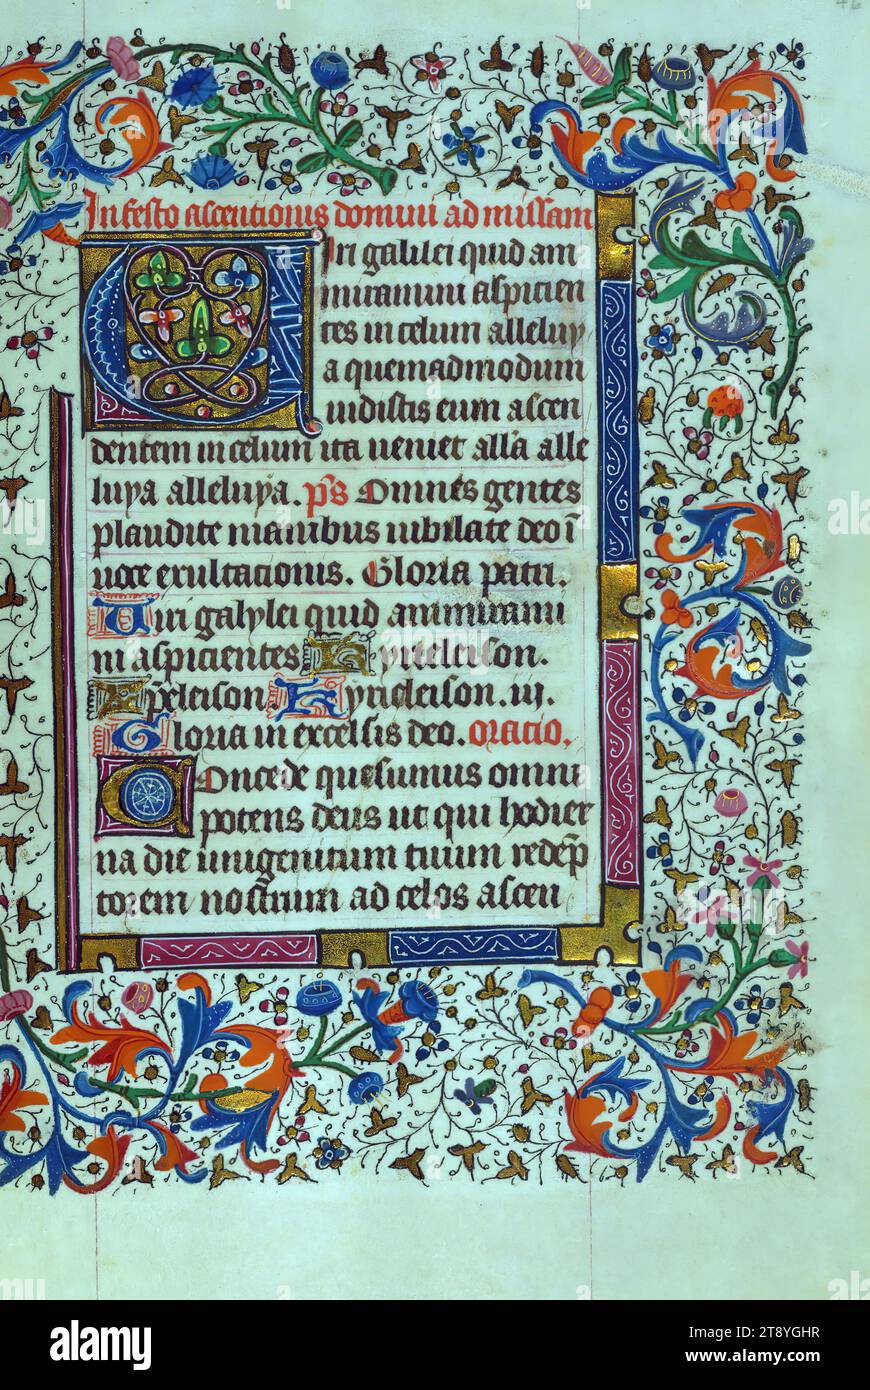 In festo ascentionis domini ad missam
Viri galilei quid am
miramini aspicien
tes in celum alleluy
a quemadmodum
vidistis eum ascen
dentem in celum ita veniet all'a alle
luya alleluya. p̄s Omnes gentes
plaudite manibus iubilate deo ī
voce exultacionis. Gloria patri.
Viri galylei quid ammirami
ni aspicientes Kyrieleison.
Xp̄eleison Kyrieleison. iii.
Gloria in excelsis deo. oracio.
Concede quesumus omni
potens deus ut qui hodier
na die unigenitum tuum redēp
torem nostrum ad celos ascen
alamy
Image ID: 2T8YGHR
www.alamy.com